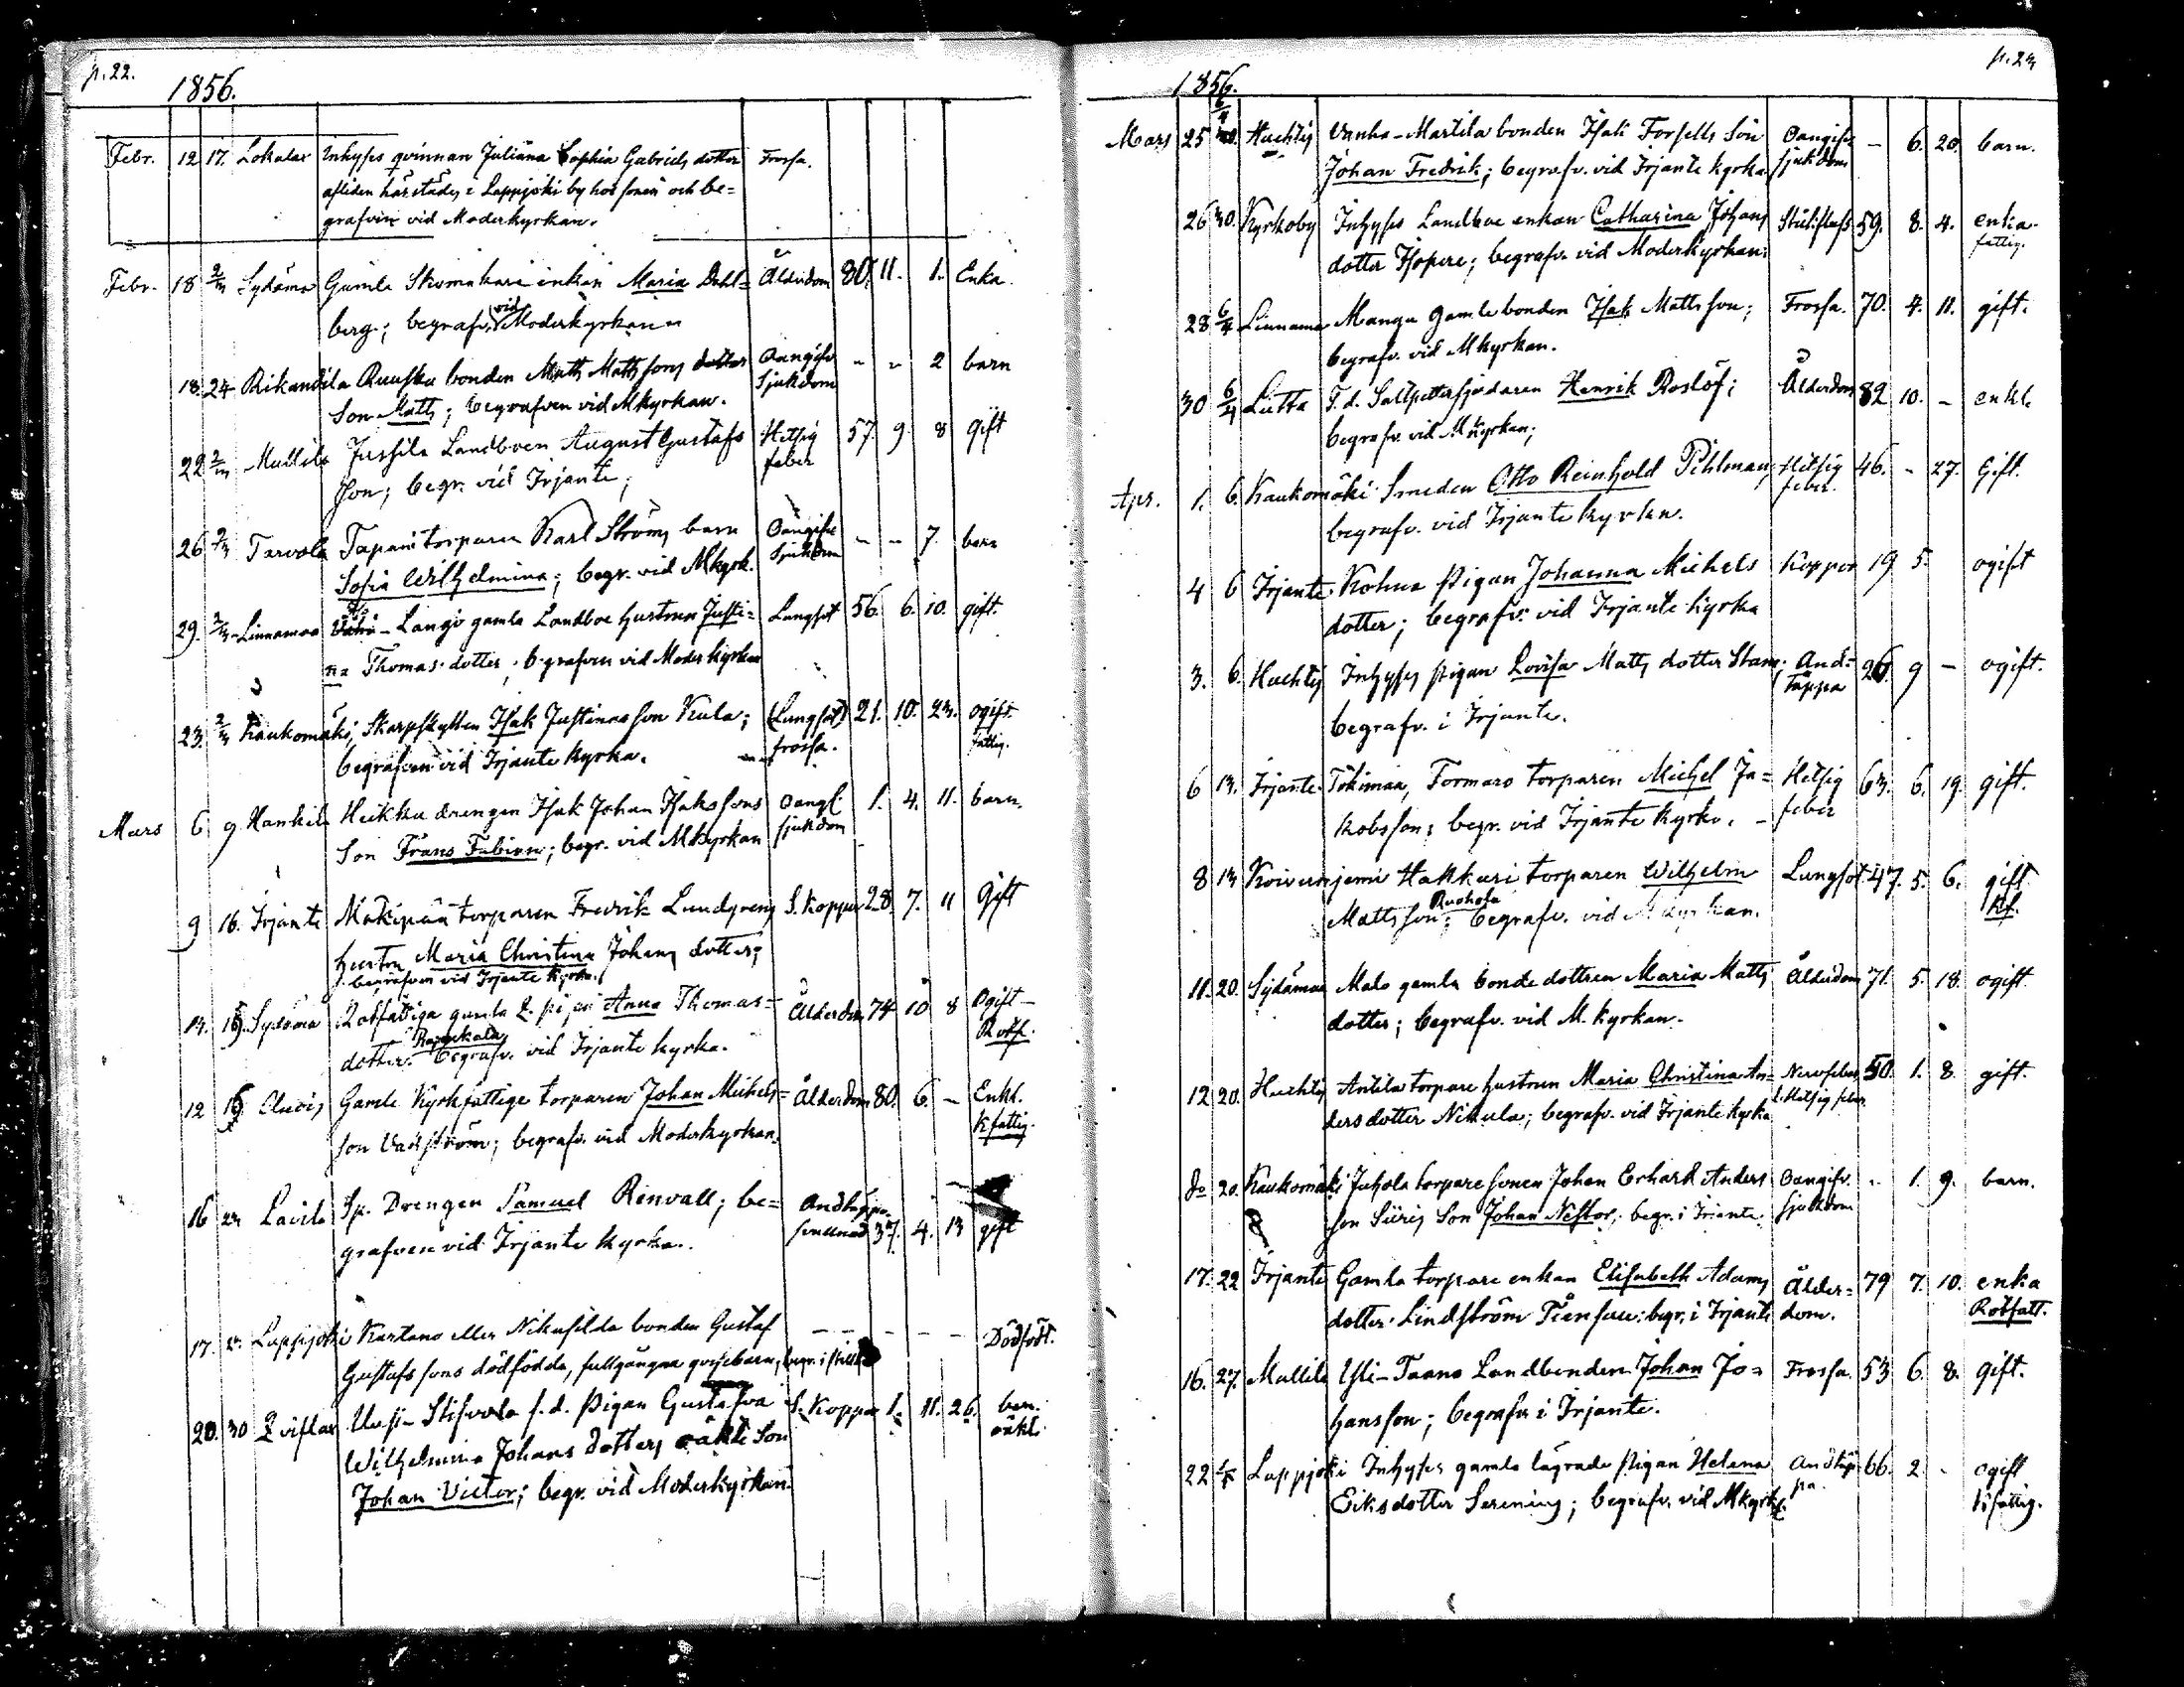 p. 22.
1856.
Febr. 12 17. Lokalax Inhyses qvinnan Juliana Sophia Gabriels dotter Frossa.
afliden härstädes i Lappijoki by hos sonen och be=
grafven vid Moderkyrkan.
Febr. 18 2/3 Sydänma Gamla Skomakare enkan Maria Dahl= Ålderdom 80. 11. 1. Enka.
berg; begrafv. vid Moderkyrkan
18. 24 Rikandila Ruuska bonden Matts Mattssons dotter Oangifv. - - 2 barn
Son Matts; begrafven vid Mkyrkan. Sjukdom
22 2/3 Mullila Jussila Landboen August Gustafs Hetsig 57. 9. 8 gift
son; begr. vid Irjante; feber
26 2/3 Tarvola Tapani torparen Karl Ströms barn Oangifve - - 7. barn
Sofia Wilhelmina; begr. vid Mkyrk. Sjukdom
29. 2/3 Linnamaa - Langö gamla Landboe hustrun Justi= Lungsot 56. 6. 10. gift.
na Thomas dotter; begrafven vid Moderkyrkan
23. 2/3 Kaukomäki, Skarpskytten Isak Justinasson Kula; (Lungsot) 21. 10. 23. ogift.
begrafven vid Irjante Kyrka. frossa. fattig.
Mars 6 9 Hankila Heikka drengen Isak Johan Isakssons oangf. 1. 4. 11. barn.
Son Frans Fabian; begr. vid MKyrkan sjukdom
9 16. Irjante Mäkipää torparen Fredrik Lundgrens S. Koppor 28. 7. 11 Gift
hustru Maria Christina Johans dotter;
begrafven vid Irjante Kyrka.
14. 16. Sydänma Rotfattiga gamla pigan Anna Thomas= Ålderdom 74 10 8 Ogift
dotter begrafv. vid Irjante kyrka. Rotf.
12 16 Gamle Kyrkfattige torparen Johan Michels= Ålderdom 80. 6. - Enkl.
son Vadström; begrafv. vid Moderkyrkan. Kfattig.
16 23 Lavila Sp. Drengen Samuel Renvall; be= Andtäppa 37. 4. 13 gift
grafven vid Irjante Kyrka.
17. 23 Lappijoki Kartano eller Nikusilda bonden Gustaf - - - - Dödfödt.
Gustafssons dödfödda, fullgångna qvinsbarn, begr. i stillh.
20. 30 Qviflax Uusi-Stifvola f. d. Pigan Gustafva S. Koppor 1. 11. 26. barn
Wilhelmina Johans dotters oäkta Son oäkt.
Johan Victor; begr. vid Moderkyrkan.
p. 23
1856.
Mars 25 6/4 Huchtis Vanha-Martila bonden Isak Forsells Son Oangifven - 6. 20. barn.
Johan Fredrik; begrafv. vid Irjante kyrka sjukdom
26 30. Kyrkoby Inhyses Landboe enkan Catharina Johans 59. 8. 4. enka
dotter Isopere; begrafv. vid Moderkyrkan: fattig.
28 6/4 Linnama Mangu gamle bonden Isak Mattsson; Frossa. 70. 4. 11. gift.
begrafv. vid Mkyrkan.
30 6/4 Lutta F. d. Saltpettersjudaren Henrik Roslöf; Ålderdom 82 10. - enkl.
begrafv. vid Mkyrkan;
Apr. 1. 6. Kaukomäki Smeden Otto Reinhold Pihlman; Hetsig 46. - 27. Gift.
begrafv. vid Irjante kyrkan. feber.
4 6 Irjante. Kohua Pigan Johanna Michels Koppor 19 5. ogift
dotter; begrafv. vid Irjante kyrka
3. 6. Huchtis Inhyses pigan Lovisa Matts dotter Stam; And= 26. 9 - ogift.
begrafv. i Irjante. täppa
6 13. Irjante. Tökimaa, Tormaro torparen Michel Ja= Hetsig 63. 6. 19. gift.
kobsson; begr. vid Irjante kyrka. feber
8 13 Koivuniemi Hakkuri torparen Wilhelm Lungsot 47. 5. 6. gift
Mattsson Ruohola; begrafv. vid Mkyrkan. Kf.
11. 20. Sydämaa Malo gamla bonde dottren Maria Matts Ålderdom 71. 5. 18. ogift
dotter; begrafv. vid M. kyrkan.
12 20. Huchtis Antila torpare hustrun Maria Christina An= Nervfeber 50. 1. 8. gift.
dersdotter Nikula; begrafv. vid Irjante kyrka l. Hetsig feber
do 20. Kaukomäki Juhola torpare sonen Johan Erhard Anders Oangifv. - 1. 9. barn.
son Siiris Son Johan Nestor; begr. i Irjante. sjukdom
17. 22 Irjante Gamla torpare enkan Elisabeth Adams Ålder= 79 7. 10. enka
dotter Lindström begr. i Irjante dom. Rotfatt.
16. 27. Mullila Yli-Taano Landbonden Johan Jo= Frossa. 53 6. 8. gift.
hansson; begrafv. i Irjante.
22 Lappijoki Inhyses gamla lägrade pigan Helena Andtäp 66. 2. - ogift
Eriksdotter Serenius; begrafv. vid Mkyrk. pa. fattig.